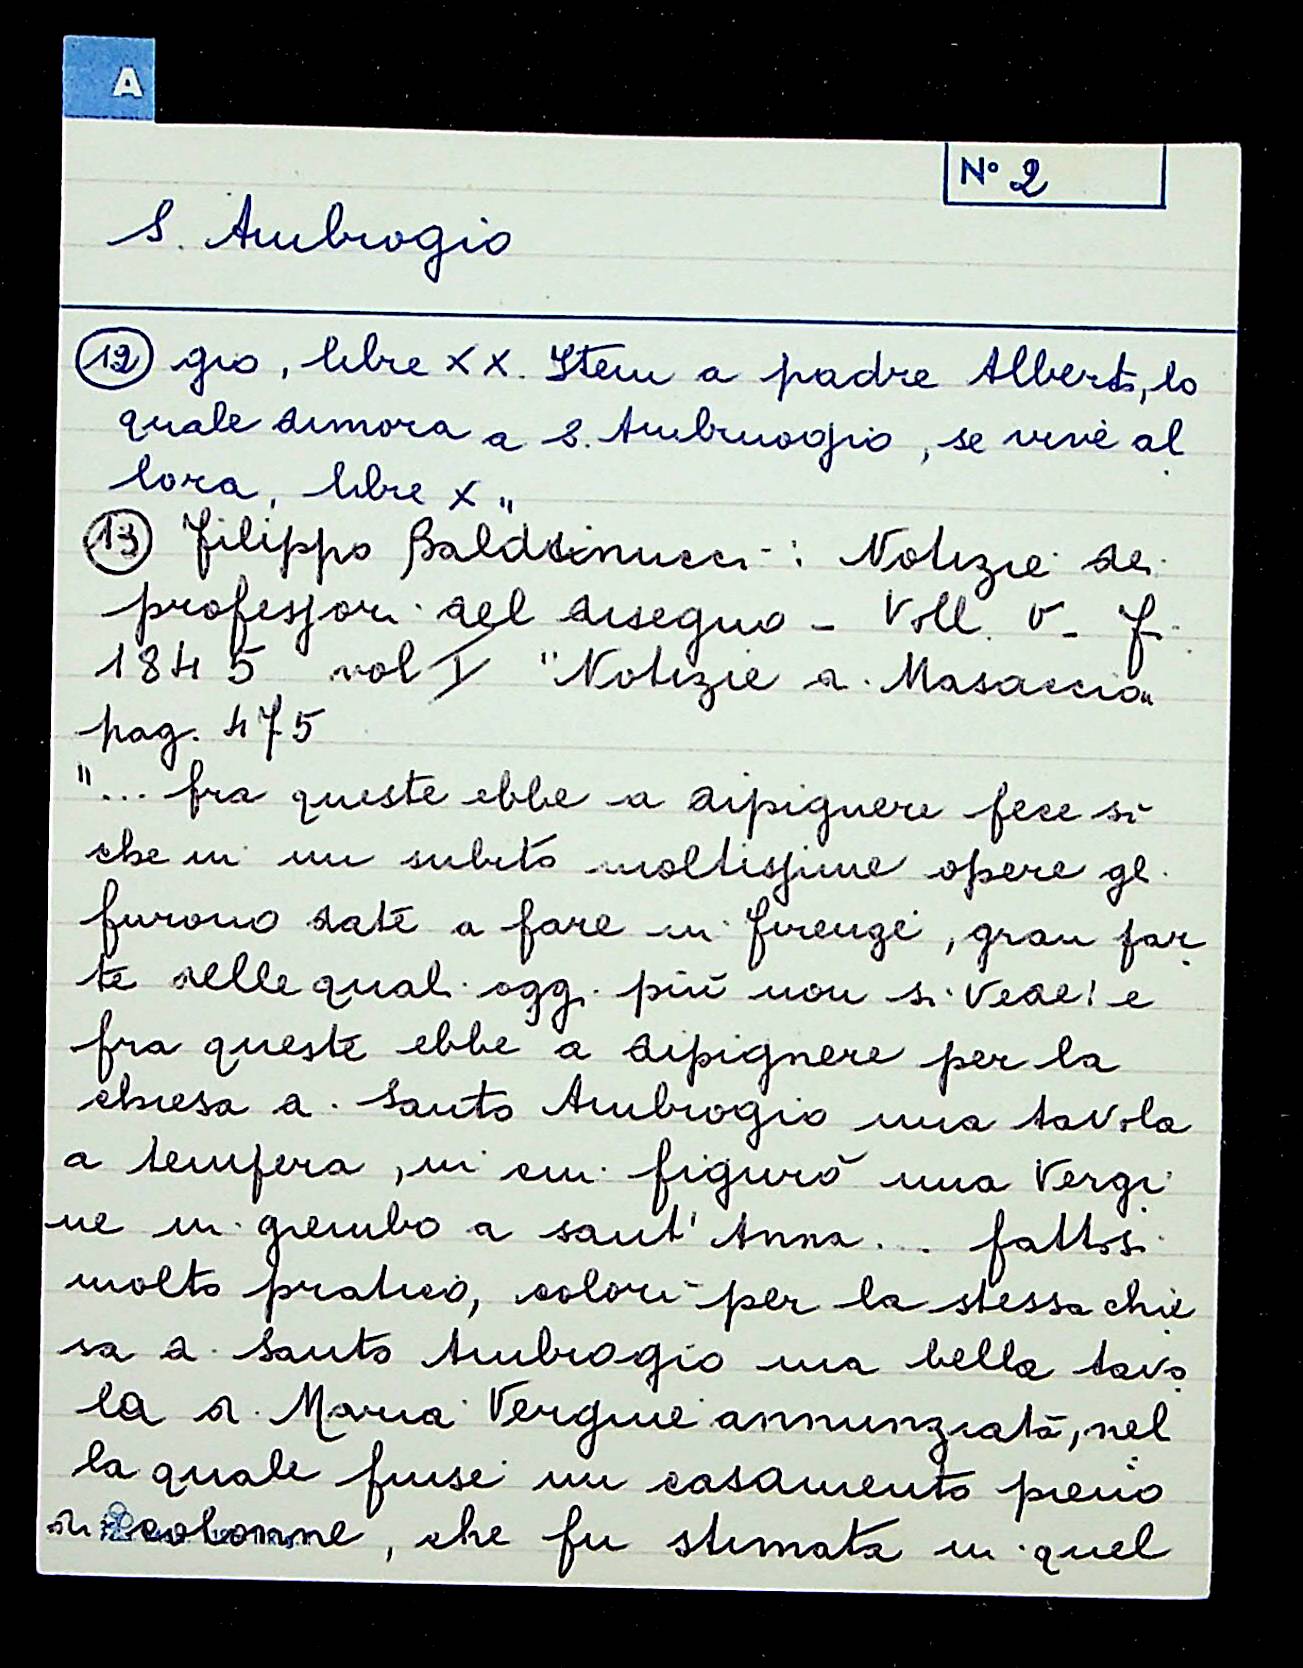 A
N° 2
S. Ambrogio
12 gio, libre XX. Item a padre Alberto, lo
quale dimora a S. Ambruogio, se vive al
lora, libre X"
13 Filippo Baldinucci: Notizie dei
professori del disegno - Voll. V - F.
1845 vol I "Notizie di Masaccio"
pag. 475
"... fra queste ebbe a dipignere fece sì
che in un subito moltissime opere gli
furono date a fare in Firenze, gran par
te delle quali oggi più non si vede; e
fra queste ebbe a dipignere per la
chiesa di Santo Ambrogio una tavola
a tempera, in cui figurò una Vergi
ne in grembo a sant'Anna... fattosi
molto pratico, colorì per la stessa chie
sa di Santo Ambrogio una bella tavo
la di Maria Vergine annunziata, nel
la quale finse un casamento pieno
di colonne, che fu stimata in quel